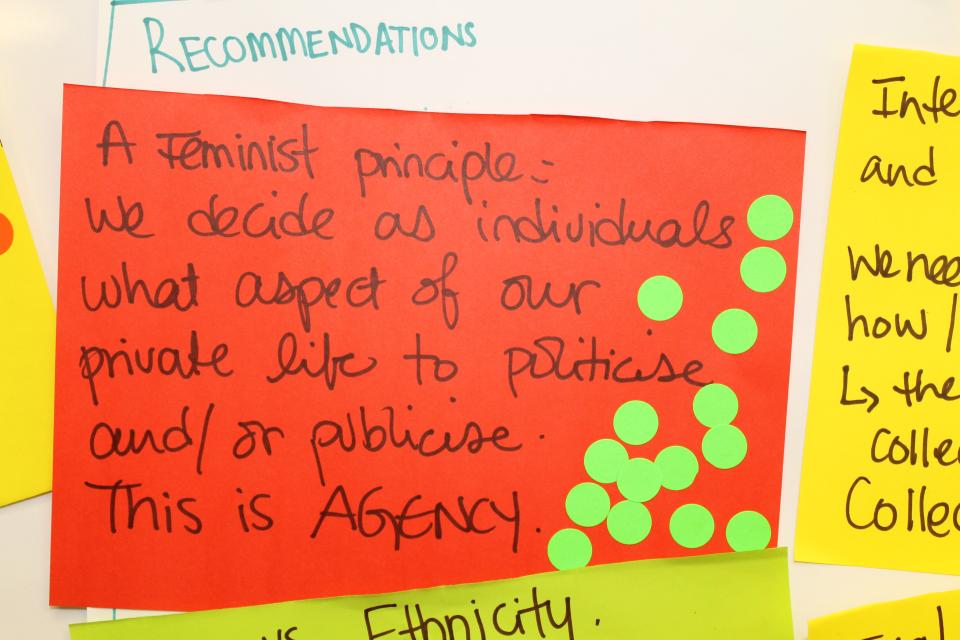 RECOMMENDATIONS
A Feminist principle:
We decide as individuals
what aspect of our
private life to politicise
and/or publicise.
This is AGENCY.
Ethnicity.
and
We nee
how /
↳ the
Colle
Collec